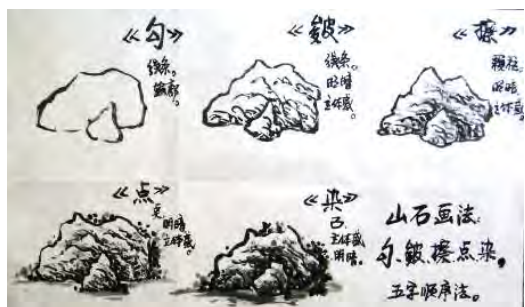 《勾》
线条。
轮廓。
《皴》
线条。
明暗
立体感。
《擦》
颗粒。
明暗
立体感。
《点》
明暗
立体感。
《染》
立体感
明暗。
山石画法:
勾、皴、擦、点染。
五字顺序法。